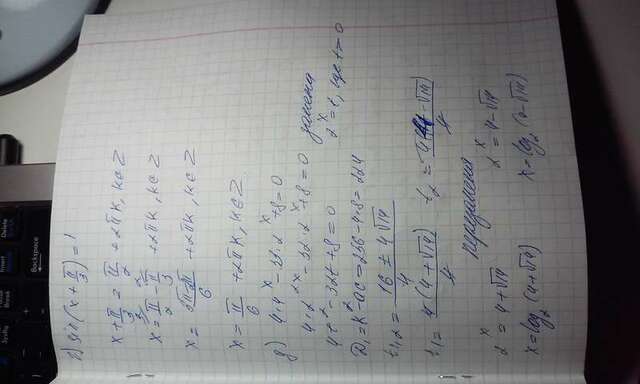 SysRq
Pause
Break
Insert
Delete
Backspace
г) sin(x + π/3) = 1
x + π/3 = π/2 + 2πk, k∈Z
x = π/2 - π/3 + 2πk, k∈Z
x = (3π-2π)/6 + 2πk, k∈Z
x = π/6 + 2πk, k∈Z
д) 4·4^x - 32·2^x + 8 = 0
4·2^2x - 32·2^x + 8 = 0 замена
4t² - 32t + 8 = 0 2^x = t, где t>0
D₁ = k² - ac = 256 - 4·8 = 224
t₁,₂ = (16 ± 4√14)/4
t₁ = 4(4+√14)/4 t₂ = 4(4-√14)/4
перезамена
2^x = 4+√14 2^x = 4-√14
x = log₂(4+√14) x = log₂(4-√14)